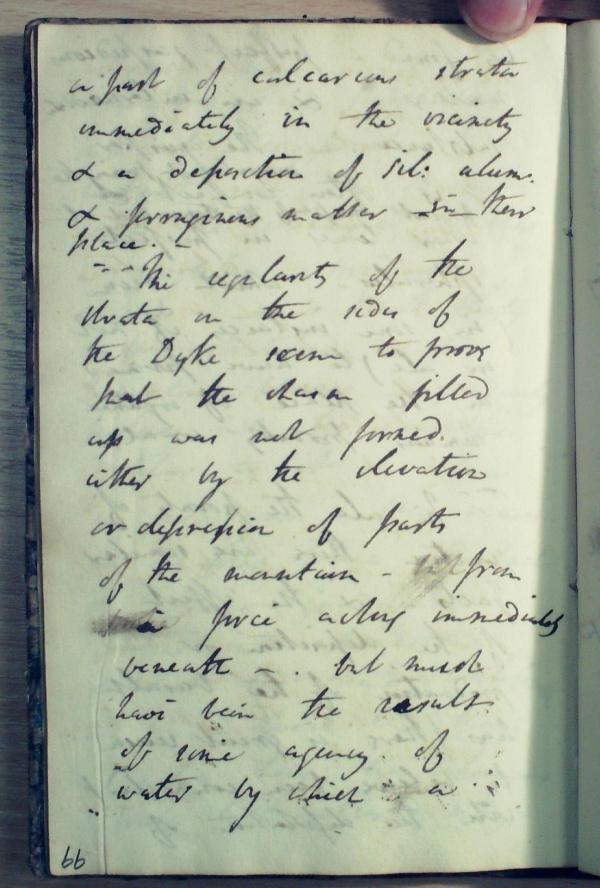 a part of calcareous strata
immediately in the vicinity
& a deposition of sil: alum.
& ferruginous matter in their
place. –
The regularity of the
strata on the sides of
the Dyke seem to prove
that the chasm filled
up was not formed
either by the elevation
or depression of parts
of the mountain - from
a force acting immediately
beneath –. but must
have been the results
of some agency of
water by which a
66